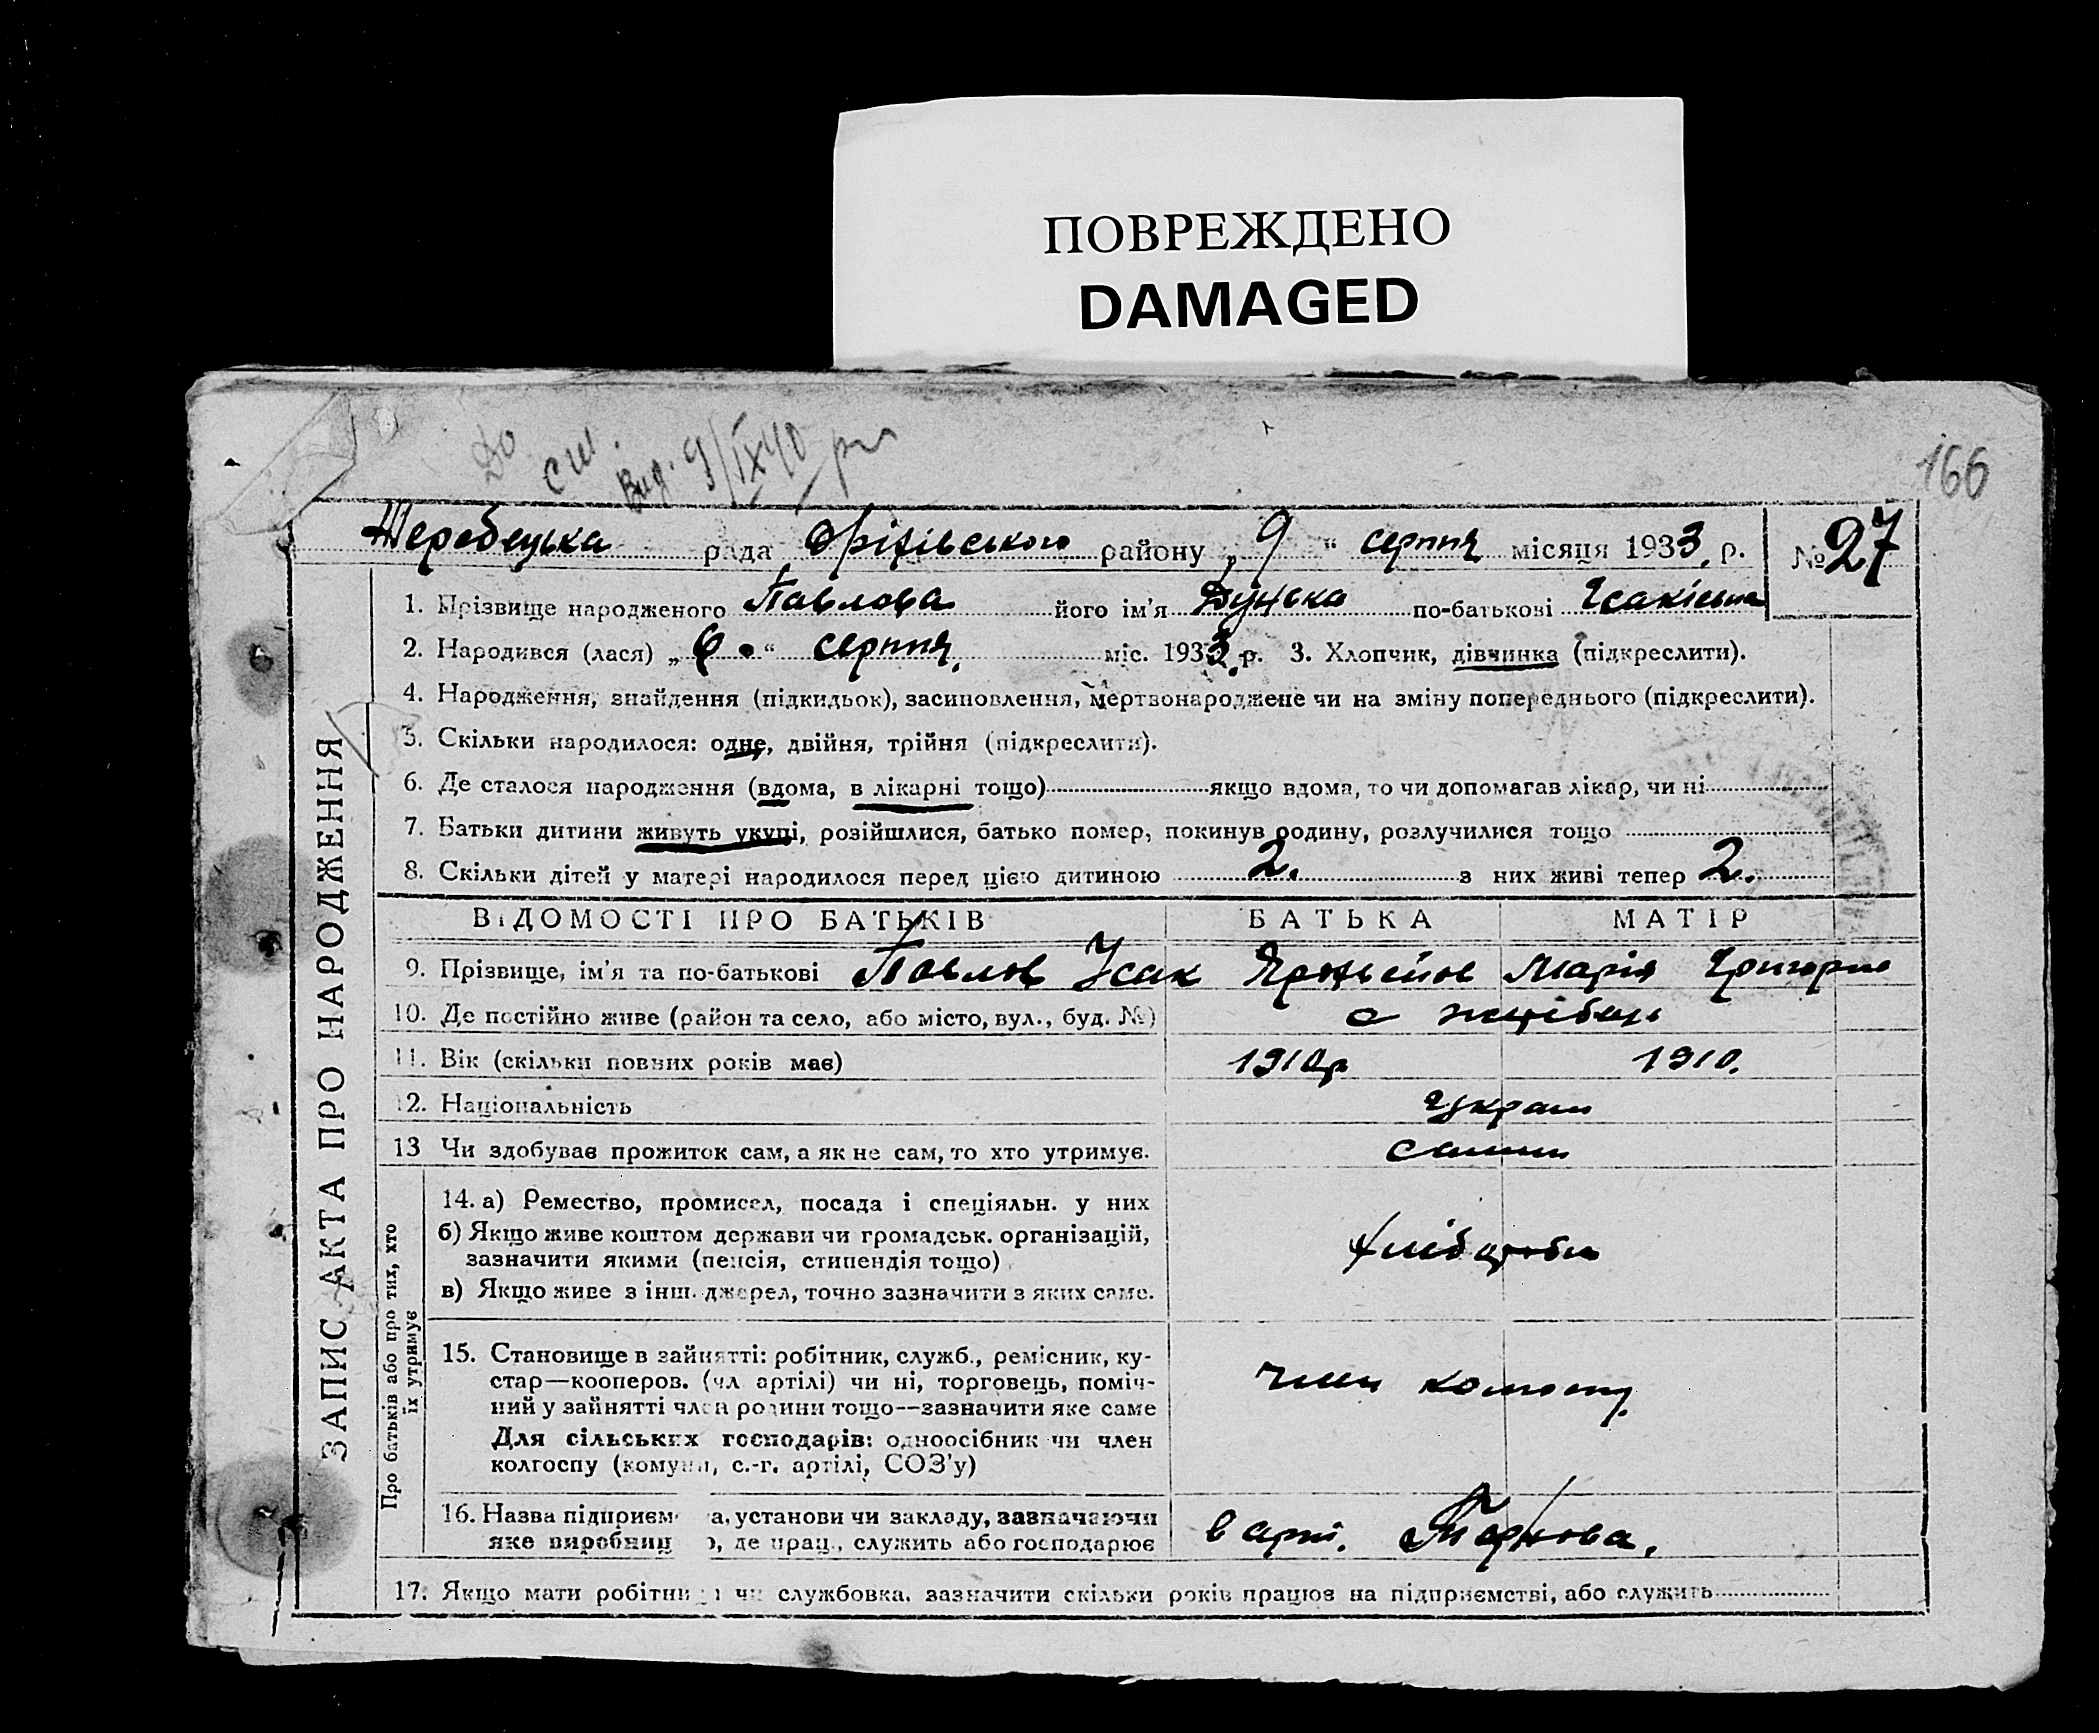 ПОВРЕЖДЕНО
DAMAGED
До
Вид. 9/IX 40
166
Жеребецька рада Оріхівського району „ 9 “ серпня місяця 1933 р. № 27
ЗАПИС АКТА ПРО НАРОДЖЕННЯ
1. Прізвище народженого Павлова його ім’я Дунька по-батькові Ісаківна
2. Народився (лася) „ 6 “ серпня міс. 1933 р. 3. Хлопчик, дівчинка (підкреслити).
4. Народження, знайдення (підкидьок), засиновлення, мертвонароджене чи на зміну попереднього (підкреслити).
5. Скільки народилося: одне, двійня, трійня (підкреслити).
6. Де сталося народження (вдома, в лікарні тощо) якщо вдома, то чи допомагав лікар, чи ні
7. Батьки дитини живуть укупі, розійшлися, батько помер, покинув родину, розлучилися тощо
8. Скільки дітей у матері народилося перед цією дитиною 2. з них живі тепер 2.
ВІДОМОСТІ ПРО БАТЬКІВ БАТЬКА МАТІР
9. Прізвище, ім’я та по-батькові Павлов Усак Марія Григорів
10. Де постійно живе (район та село, або місто, вул., буд. №) с
11. Вік (скільки повних років має) 1910р 1910.
12. Національність Україн
13 Чи здобуває прожиток сам, а як не сам, то хто утримує. сами
Про батьків або про тих, хто
їх утримує
14. а) Ремество, промисел, посада і спеціяльн. у них
б) Якщо живе коштом держави чи громадськ. організацій,
зазначити якими (пенсія, стипендія тощо)
в) Якщо живе з інш. джерел, точно зазначити з яких саме.
хліборобы
15. Становище в зайнятті: робітник, служб., ремісник, ку-
стар—кооперов. (чл артілі) чи ні, торговець, поміч-
ний у зайнятті член родини тощо—зазначити яке саме
Для сільських господарів: одноосібник чи член
колгоспу (комуни, с.-г. артілі, СОЗ’у)
член
16. Назва підприєм а, установи чи закладу, зазначаючи
яке виробниц о, де прац., служить або господарює
в арт.
17. Якщо мати робітни чи службовка, зазначити скільки років працює на підприємстві, або служить